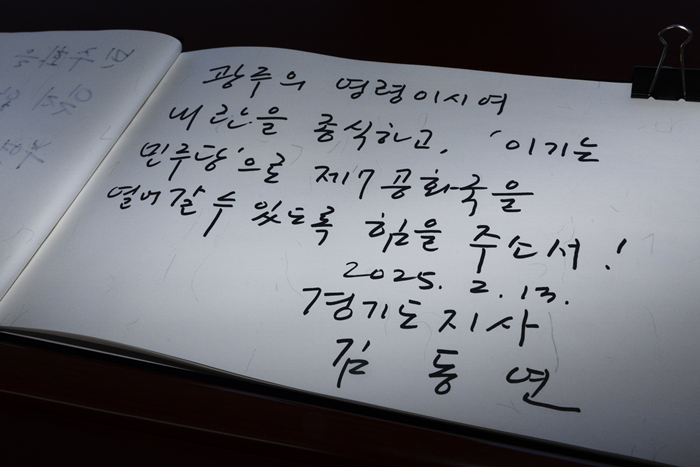 민주화를
광주의 영령이시여
내란을 종식하고, '이기는
민주당'으로 제7공화국을
열어갈 수 있도록 힘을 주소서!
2025. 2. 13.
경기도지사
김 동 연